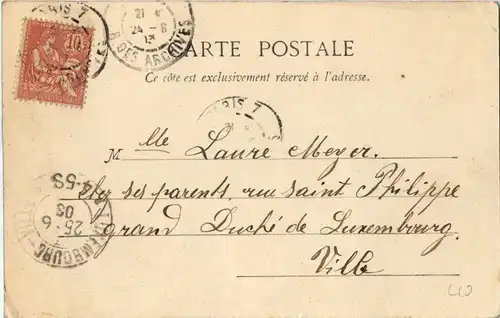 PARIS 7
21
24 - 6
R DES ARCHIVES
10
CARTE POSTALE
Ce côté est exclusivement réservé à l'adresse.
PARIS 7
M lle Laure Meyer
chez ses parents, rue saint Philippe
grand Duché de Luxembourg.
Ville
4-5S
25-6
03
LUXEMBOURG